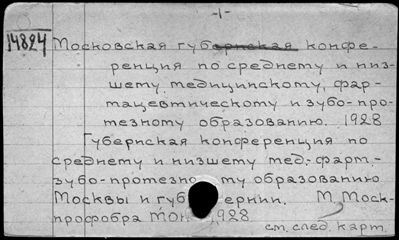 -1-
14824 Московская губернская конфе-
ренция по среднему и низ-
шему медицинскому, фар-
мацевтическому и зубо-про-
тезному образованию. 1928
Губернская конференция по
среднему и низшему мед.-фарм.-
зубо-протезно му образованию
Москвы и губ ернии. М, Моск-
профобра МОН 1928
см. след. карт.